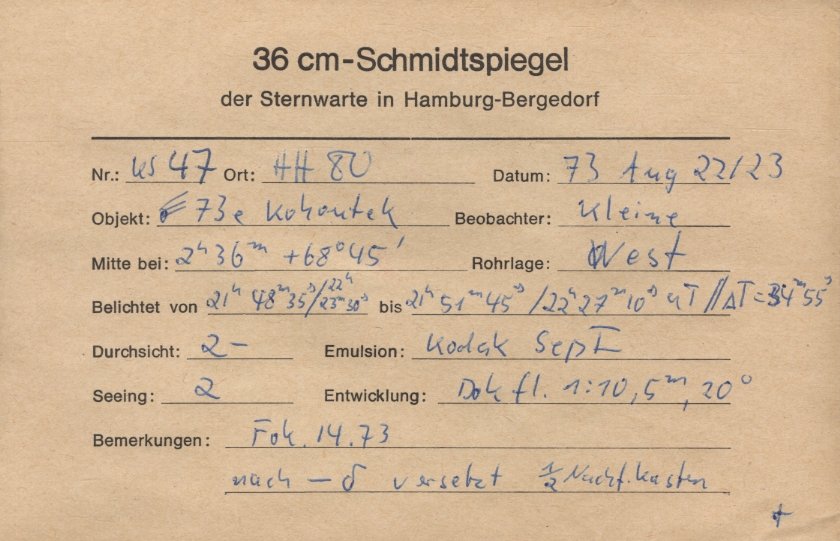 36 cm-Schmidtspiegel
der Sternwarte in Hamburg-Bergedorf
Nr.: KS 47 Ort: HH 80 Datum: 73 Aug 22/23
Objekt: 73e Kohoutek Beobachter: Kleine
Mitte bei: 2ʰ36ᵐ +68°45' Rohrlage: West
Belichtet von 21ʰ 48ᵐ 35ˢ/22ʰ 23ᵐ 30ˢ bis 21ʰ 51ᵐ 45ˢ/22ʰ 27ᵐ 10ˢ UT // ΔT = 34ᵐ 55ˢ
Durchsicht: 2- Emulsion: Kodak
Seeing: 2 Entwicklung: Dok fl. 1:10, 5ᵐ, 20°
Bemerkungen: Fok. 14.73
nach – δ versetzt ½ Nachf.kasten
+